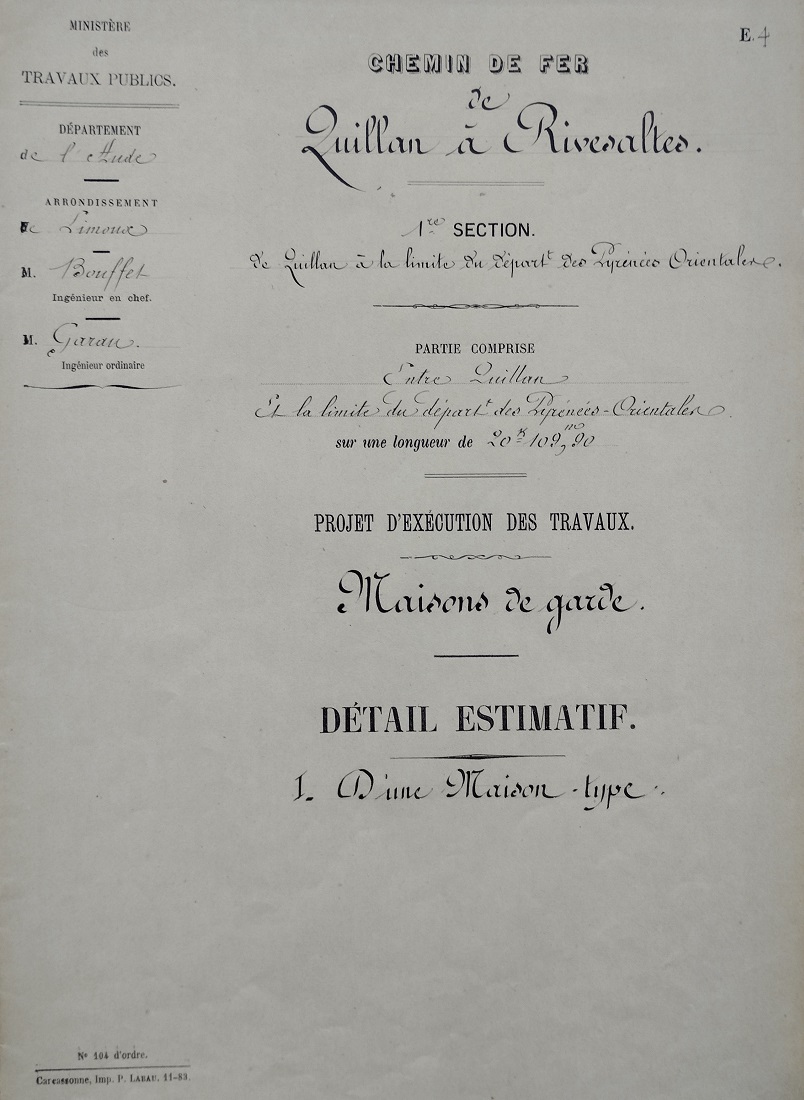 MINISTÈRE
des
TRAVAUX PUBLICS.
DÉPARTEMENT
de l'Aude
ARRONDISSEMENT
de Limoux
M. Bouffet
Ingénieur en chef.
M. Garau.
Ingénieur ordinaire
E. 4
CHEMIN DE FER
de
Quillan à Rivesaltes.
1re SECTION.
de Quillan à la limite du départt des Pyrénées Orientales.
PARTIE COMPRISE
Entre Quillan
Et la limite du départt des Pyrénées-Orientales.
sur une longueur de 20k 109m,90
PROJET D'EXÉCUTION DES TRAVAUX.
Maisons de garde.
DÉTAIL ESTIMATIF.
1. D'une Maison-type.
No 104 d'ordre.
Carcassonne, Imp. P. LABAU. 11-83.